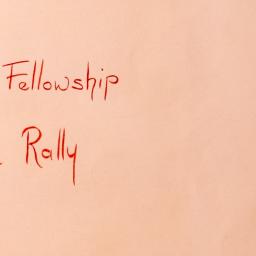 Fellowship
Rally